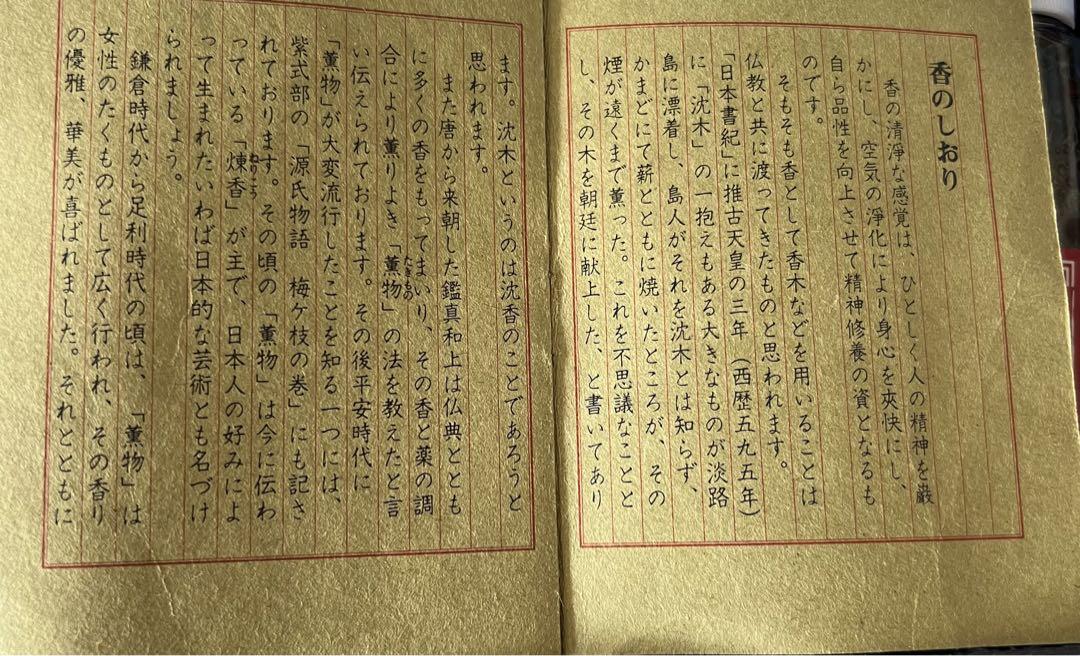 香のしおり
香の清淨な感覚は、ひとしく人の精神を厳
かにし、空気の淨化により身心を爽快にし、
自ら品性を向上させて精神修養の資となるも
のです。
そもそも香として香木などを用いることは
仏教と共に渡ってきたものと思われます。
「日本書紀」に推古天皇の三年（西歴五九五年）
に「沈木」の一抱えもある大きなものが淡路
島に漂着し、島人がそれを沈木とは知らず、
かまどにて薪とともに焼いたところが、その
煙が遠くまで薫った。これを不思議なことと
し、その木を朝廷に献上した、と書いてあり
ます。沈木というのは沈香のことであろうと
思われます。
また唐から来朝した鑑真和上は仏典ととも
に多くの香をもってまいり、その香と薬の調
合により薫りよき「薫物」の法を教えたと言
い伝えられております。その後平安時代に
「薫物」が大変流行したことを知る一つには、
紫式部の「源氏物語　梅ケ枝の巻」にも記さ
れております。その頃の「薫物」は今に伝わ
っている「煉香」が主で、日本人の好みによ
って生まれたいわば日本的な芸術とも名づけ
られましょう。
鎌倉時代から足利時代の頃は、「薫物」は
女性のたくものとして広く行われ、その香り
の優雅、華美が喜ばれました。それとともに